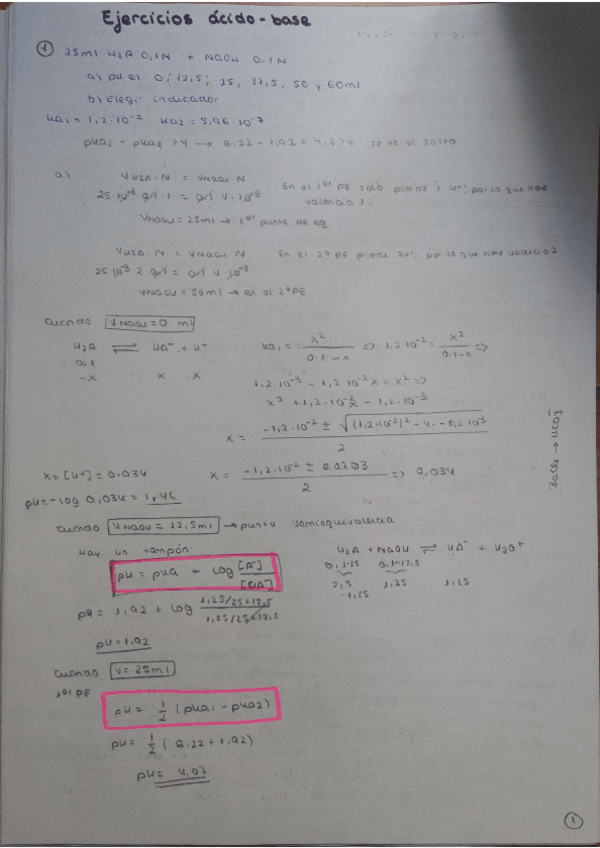 Ejercicios ácido-base
① 25ml H2A 0,1N + NaOH 0.1N
a) pH en 0; 12,5; 25, 37,5, 50 y 60ml
b) Elegir indicador
Ka1 = 1,2·10⁻² Ka2 = 5,96·10⁻⁷
pKa1 - pKa2 >4 → 6.22 - 1,92 = 4,3>4 se ve el salto
a) VH2A·N = VNaOH N
25·10⁻³ gr/l·1 = gr/l V·10⁻³ En el 1er PE solo pierde 1 H⁺, por lo que tiene
valencia 1.
VNaOH = 25ml → 1er punto de eq
VH2A·N = VNaOH N En el 2º PE pierde 2H⁺, por lo que tiene valencia 2.
25 10⁻³ 2 gr/l = gr/l V 10⁻³
VNaOH = 50ml → en el 2º PE
Cuando VNaOH = 0 ml
H2A ⇌ HA⁻ + H⁺ Ka1 = x²/0.1-x => 1,2 10⁻² = x²/0.1-x =>
0,1
-x x x
1,2·10⁻³ - 1,2 10⁻² x = x² =>
x² + 1,2·10⁻²x - 1,2·10⁻³
x = -1,2·10⁻² ± √(1,2·10⁻²)² - 4·-1,2 10⁻³ / 2
x = [H+] = 0,034 x = -1,2·10⁻² ± 0.0703 / 2 => 0,034
pH = -log 0,034 = 1,46
Cuando VNaOH = 12,5ml → punto semiequivalencia
Hay un tampón H2A + NaOH ⇌ HA⁻ + H3O⁺
pH = pKa + log [A⁻]/[HA] 0,1·25 0,1·12,5
2,5 1,25 1,25
-1,25
pH = 1,92 + log 1,25/25+12,5 / 1,25/25+12,5
pH = 1,92
Cuando V = 25ml
1er PE
pH = 1/2 (pKa1 - pKa2)
pH = 1/2 (6.22 + 1,92)
pH = 4,07
1